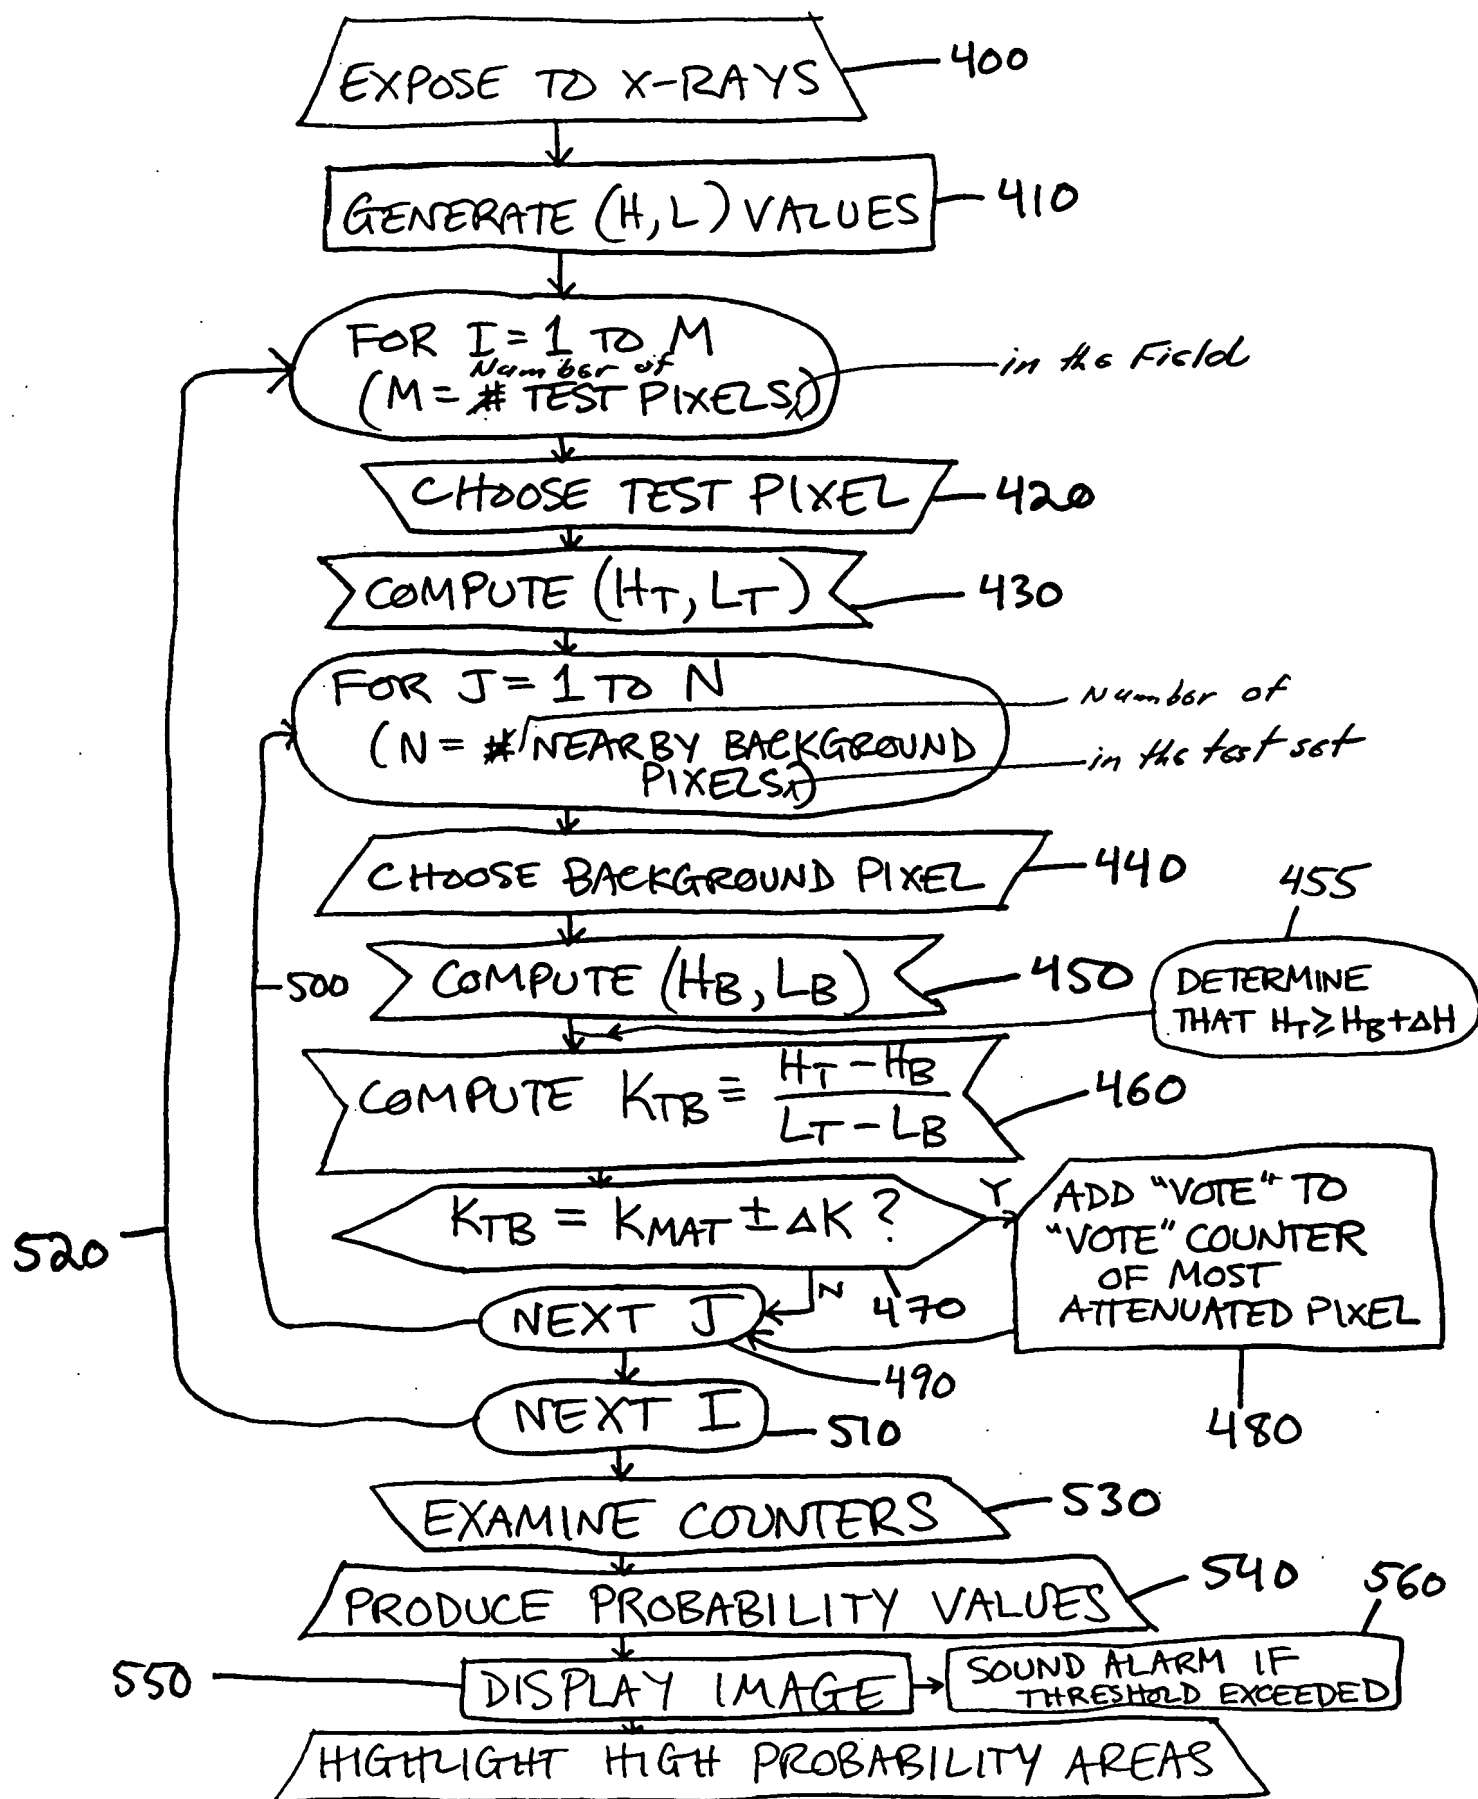 EXPOSE TO X-RAYS
400
GENERATE (H,L) VALUES
410
FOR I = 1 TO M
Number of
(M = # TEST PIXELS)
in the Field
CHOOSE TEST PIXEL
420
COMPUTE (HT, LT)
430
FOR J = 1 TO N
Number of
(N = # NEARBY BACKGROUND
PIXELS)
in the test set
CHOOSE BACKGROUND PIXEL
440
455
COMPUTE (HB, LB)
450
500
DETERMINE
THAT HT ≥ HB + ΔH
COMPUTE KTB ≡ HT - HB
LT - LB
460
KTB = KMAT ± ΔK ?
Y
N
470
ADD "VOTE" TO
"VOTE" COUNTER
OF MOST
ATTENUATED PIXEL
480
520
NEXT J
490
NEXT I
510
EXAMINE COUNTERS
530
PRODUCE PROBABILITY VALUES
540
560
550
DISPLAY IMAGE
SOUND ALARM IF
THRESHOLD EXCEEDED
HIGHLIGHT HIGH PROBABILITY AREAS